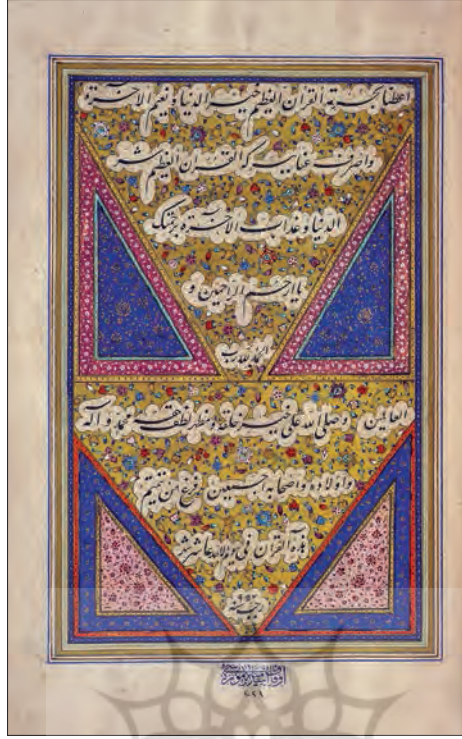 اعطنا بحرمة القرآن العظیم خیر الدنیا و نعیم الآخرة و
واصرف عنا ببرکة القرآن العظیم شر
الدنیا و عذاب الآخرة برحمتک
یا ارحم الراحمین و
الحمد لله رب
العالمین و صلی الله علی خیر خلقه و مظهر لطفه محمد و آله
و اولاده و اصحابه اجمعین فرغ من تتمیم
هذه القرآن فی یوم الاحد عاشر شهر
رجب
۷۷۹